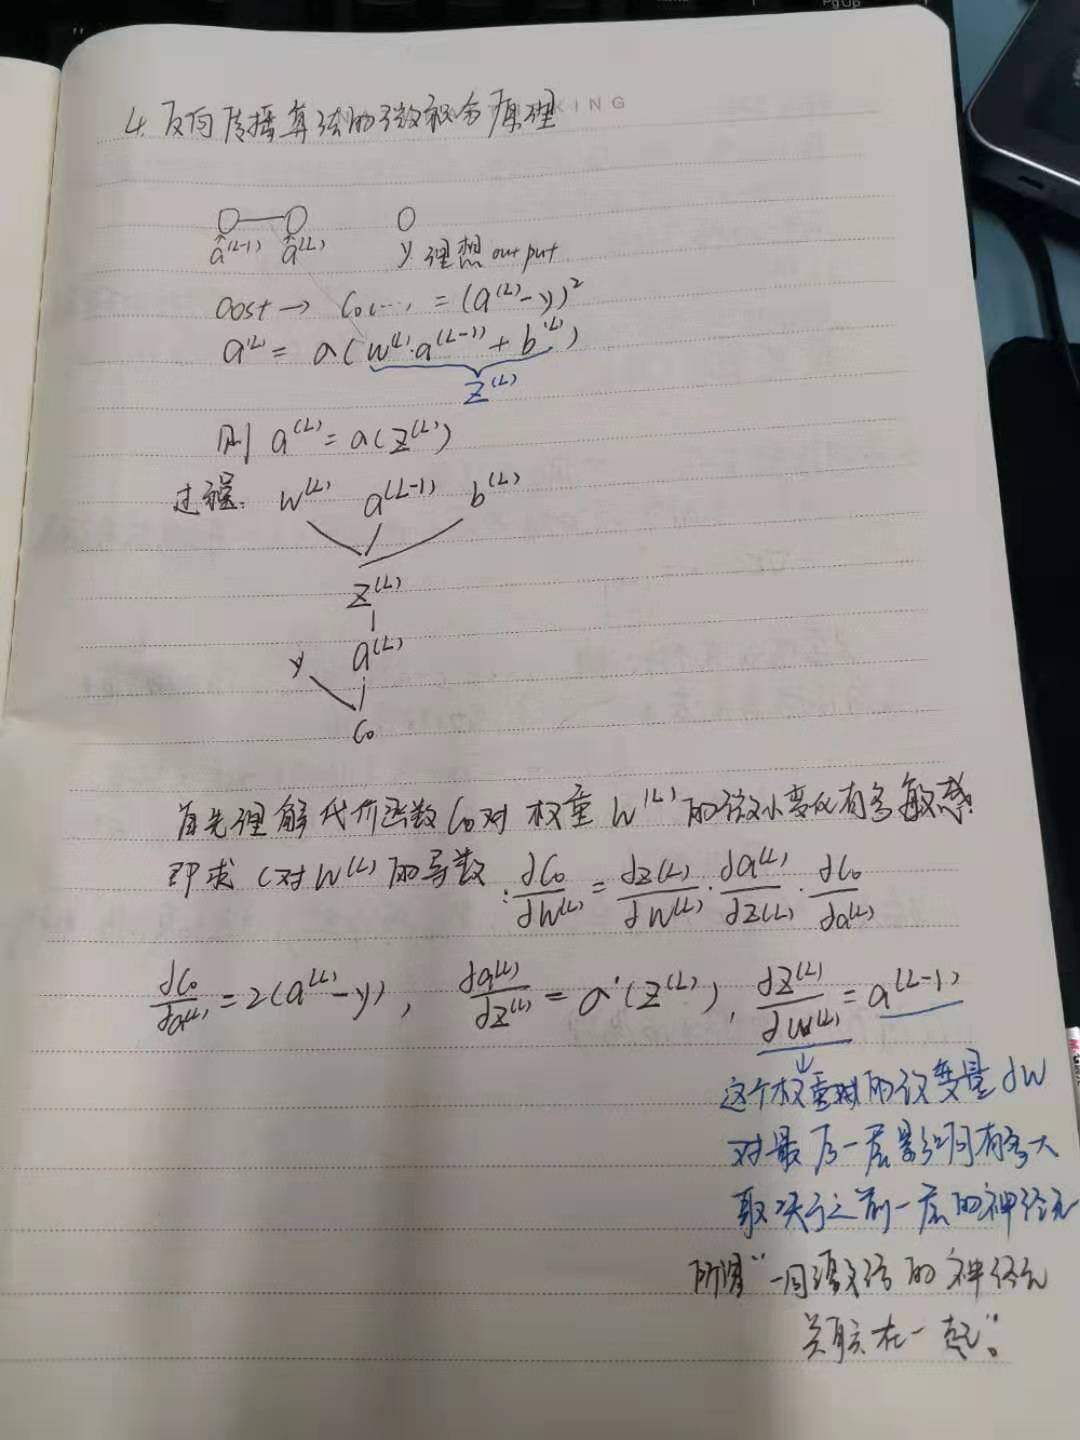 PgUp
KING
4. 反向传播算法的微积分原理
a^(L-1) a^(L) y 理想 output
cost → C₀(...) = (a^(L) - y)²
a^(L) = a(w^(L)·a^(L-1) + b^(L))
z^(L)
则 a^(L) = a(z^(L))
过程: w^(L) a^(L-1) b^(L)
z^(L)
y a^(L)
C₀
首先理解代价函数 C₀对 权重 w^(L) 的微小变化有多敏感
即求 C对 w^(L) 的导数: ∂C₀/∂w^(L) = ∂z^(L)/∂w^(L) · ∂a^(L)/∂z^(L) · ∂C₀/∂a^(L)
∂C₀/∂a^(L) = 2(a^(L) - y), ∂a^(L)/∂z^(L) = a'(z^(L)), ∂z^(L)/∂w^(L) = a^(L-1)
这个权重的改变量 ∂w
对最后一层影响有多大
取决于之前一层的神经元
所谓“一同激活的神经元
关联在一起”。